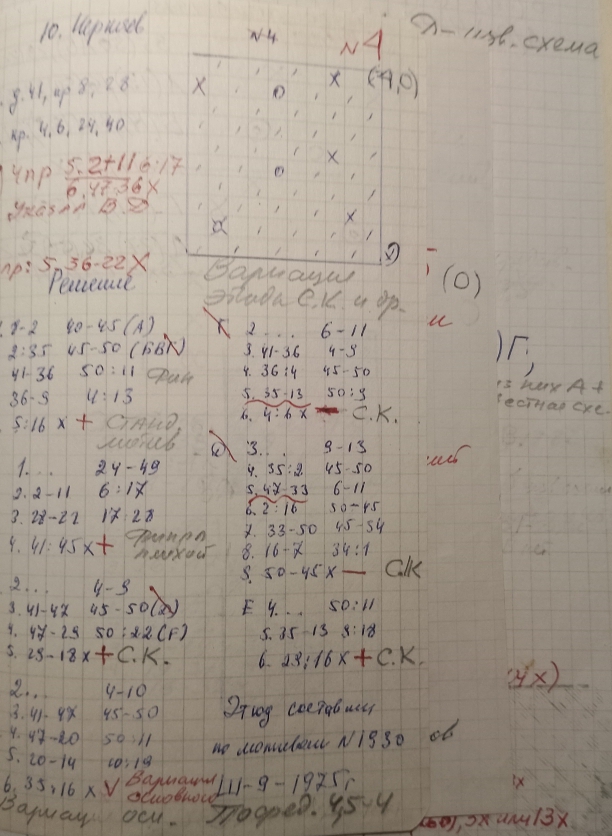 10. Черняев
N4
N4
Д-
схема
(4,0)
д. 41, пр 8, 28
пр. 4, 6, 24, 40
5. 2+11 6:17
6. 47-36 X
пр: 5. 36-22 X
Решение
Вариация
С.К. и др.
(0)
8-2 40-45 (А)
2:35 45-50 (БВГ)
41-36 50:11
36-9 4:13
5:16 X + СТАНД.
мотив
1... 24-49
2. 2-11 6:17
3. 28-22 17:28
4. 41:45 X + Финал
плохой
2... 4-9
3. 41-47 45-50 (Д)
4. 47-29 50:22 (Е)
5. 29-18 X + С.К.
2... 4-10
3. 41-47 45-50
4. 47-20 50:11
5. 20-14 10:19
6. 35:16 X V Вариация
основного
Вариац осн.
Г. 2.... 6-11
3. 41-36 4-9
4. 36:4 45-50
5. 35-13 50:9
6. 4:6 X — С.К.
Д 3... 9-13
4. 35:2 45-50
5. 47-33 6-11
6. 2:16 50-45
7. 33-50 45-54
8. 16-7 34:1
9. 50-45 X — С.К
Е 4... 50:11
5. 35-13 9:18
6. 29:16 X + С.К.
Этюд составили
по мотивам N 1930
III-9-1975г
4,5-4
)Г,
из них А+
(4X)
эх или 13X